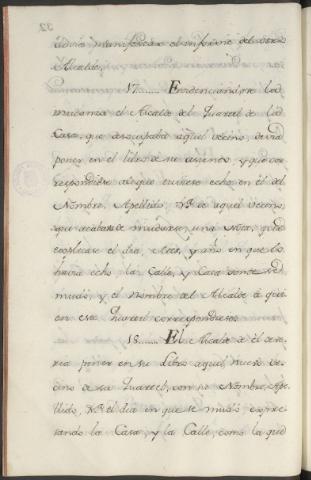 32
Alcalde.
17...... Evidenciandose la
mudanza el Alcalde del Quartel de la
Casa, que desocupaba aquel vecino, devia
poner en el libro de su asiento y que cor
respondiere al que tuviese echo en él del
Nombre, Apellido, &c. de aquel Vecino,
que acababa de mudarse, una Nota, que
explicase el dia, Mes, y año en que lo
havia echo la Calle, y Casa donde se
mudó, y el nombre del Alcalde à qui
en ese Quartel correspondiese.
18...... El Alcalde de él deve
ria poner en su Libro aquel nuevo Ve
cino de su Quartel, con su Nombre, Ape
llido, &c. el dia en que se mudó expre
sando la Casa, y la Calle, como la que